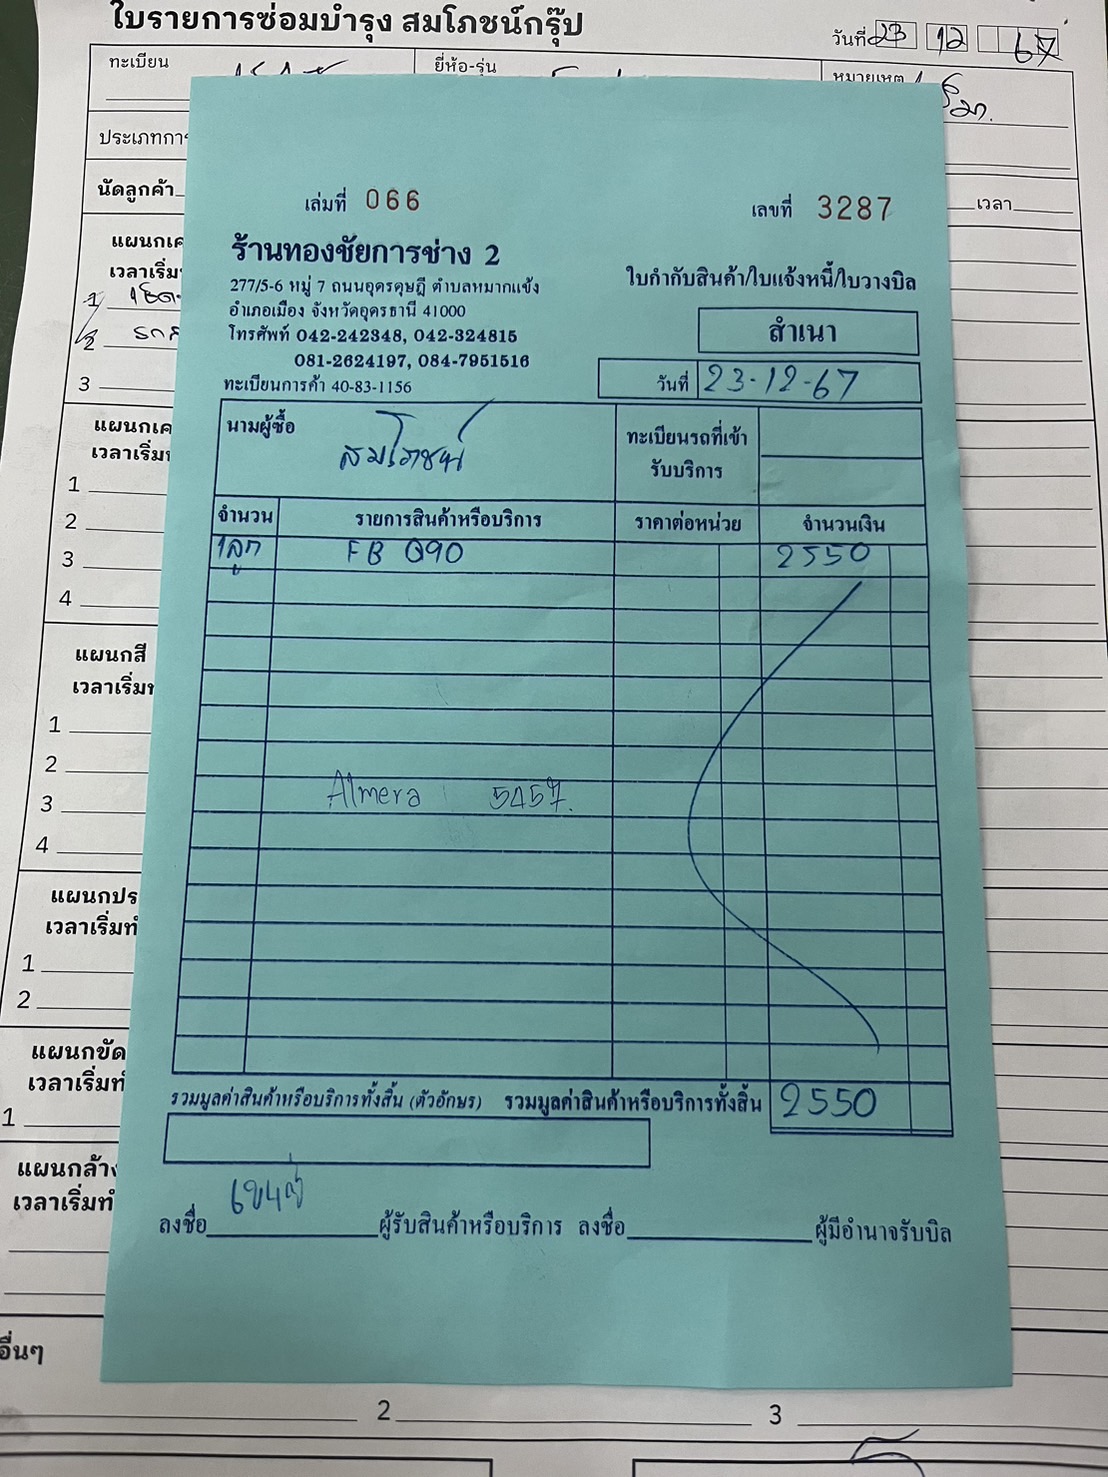 ใบรายการซ่อมบำรุง สมโภชน์กรุ๊ป
วันที่ 23 12 67
ทะเบียน ยี่ห้อ-รุ่น หมายเหตุ
ประเภทกา
นัดลูกค้า เวลา
แผนกเค
เวลาเริ่ม
1
2
3
แผนกเค
เวลาเริ่ม
1
2
3
4
แผนกสี
เวลาเริ่มท
1
2
3
4
แผนกประ
เวลาเริ่มทำ
1
2
แผนกขัด
เวลาเริ่มทำ
1
แผนกล้าง
เวลาเริ่มทำ
อื่นๆ
2 3
เล่มที่ 066 เลขที่ 3287
ร้านทองชัยการช่าง 2
277/5-6 หมู่ 7 ถนนอุดรดุษฎี ตำบลหมากแข้ง
อำเภอเมือง จังหวัดอุดรธานี 41000
โทรศัพท์ 042-242348, 042-324815
081-2624197, 084-7951516
ทะเบียนการค้า 40-83-1156
ใบกำกับสินค้า/ใบแจ้งหนี้/ใบวางบิล
สำเนา
วันที่ 23-12-67
นามผู้ซื้อ สมโภชน์
ทะเบียนรถที่เข้า
รับบริการ
จำนวน รายการสินค้าหรือบริการ ราคาต่อหน่วย จำนวนเงิน
1ลูก FB Q90 2550
Almera 5457.
รวมมูลค่าสินค้าหรือบริการทั้งสิ้น (ตัวอักษร) รวมมูลค่าสินค้าหรือบริการทั้งสิ้น 2550
ลงชื่อ ผู้รับสินค้าหรือบริการ ลงชื่อ ผู้มีอำนาจรับบิล